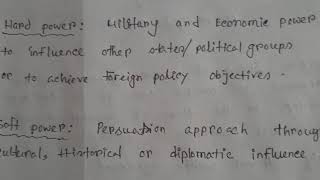 Hard power: Military and Economic power
to influence other states/political groups
or to achieve foreign policy objectives.
Soft power: Persuasion approach through
cultural, Historical or diplomatic influence.